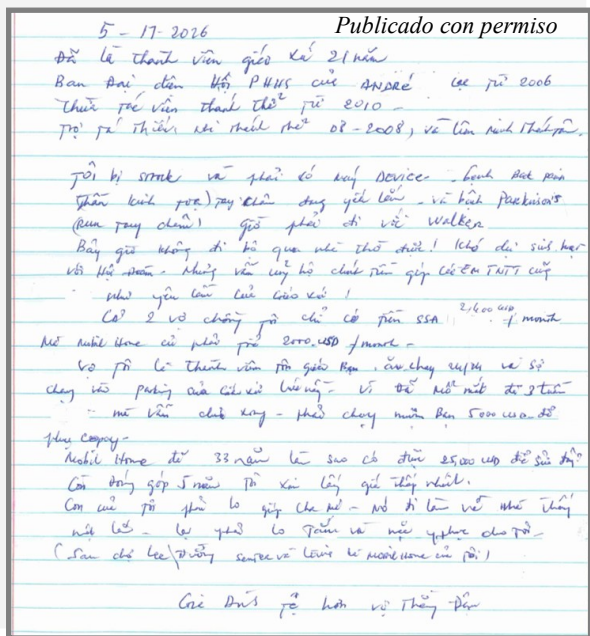 5 - 17 - 2026
Publicado con permiso
Đã là thành viên giáo xứ 21 năm
Ban Đại diện Hội PHHS của ANDRÉ Lee từ 2006
Thừa tác viên thánh thể từ 2010 -
Trợ tá Thiếu nhi thánh thể 08-2008, và
Tôi bị stroke và phải có máy Device - bệnh
thần kinh tọa) tay chân đang yếu lắm - và bệnh Parkinson's
(run tay chân) giờ phải đi với Walker
Bây giờ không đi bộ qua nhà thờ được! Khó
với Hội Đoàn - nhưng vẫn ủng hộ chút tiền giúp các EM TNTT cũng
như yêu cầu của Giáo xứ!
Cả 2 vợ chồng tôi chỉ có tiền SSA 2,400 USD / month
Mà mobil Home cũ phải trả 2000.USD /month -
Vợ tôi là thành viên tôn giáo bạn, ăn chay 24/24 và sợ
chạy vào parking của - vì đã mổ mắt đã 3 tuần
mà vẫn chưa xong - phải chạy mượn bạn 5000 USD để
phụ copay -
Mobil Home đã 33 năm làm sao có đủ 25,000 USD để sửa đây?
Còn đóng góp 5 năm tôi xin lấy giá thấp nhất.
Con của tôi phải lo giúp cha mẹ - nó đi làm về nhà thấy
mệt lắm - lại phải lo Tắm và mặc y phục cho tôi -
(Sau chợ Lee \ Đường senter và Lewis là Mobile Home của tôi)